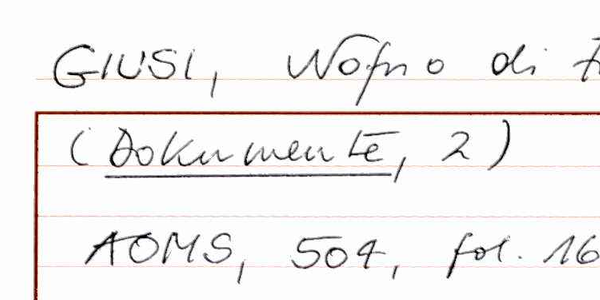 GIUSI, Nofrio di
(Dokumente, 2)
AOMS, 504, fol. 16